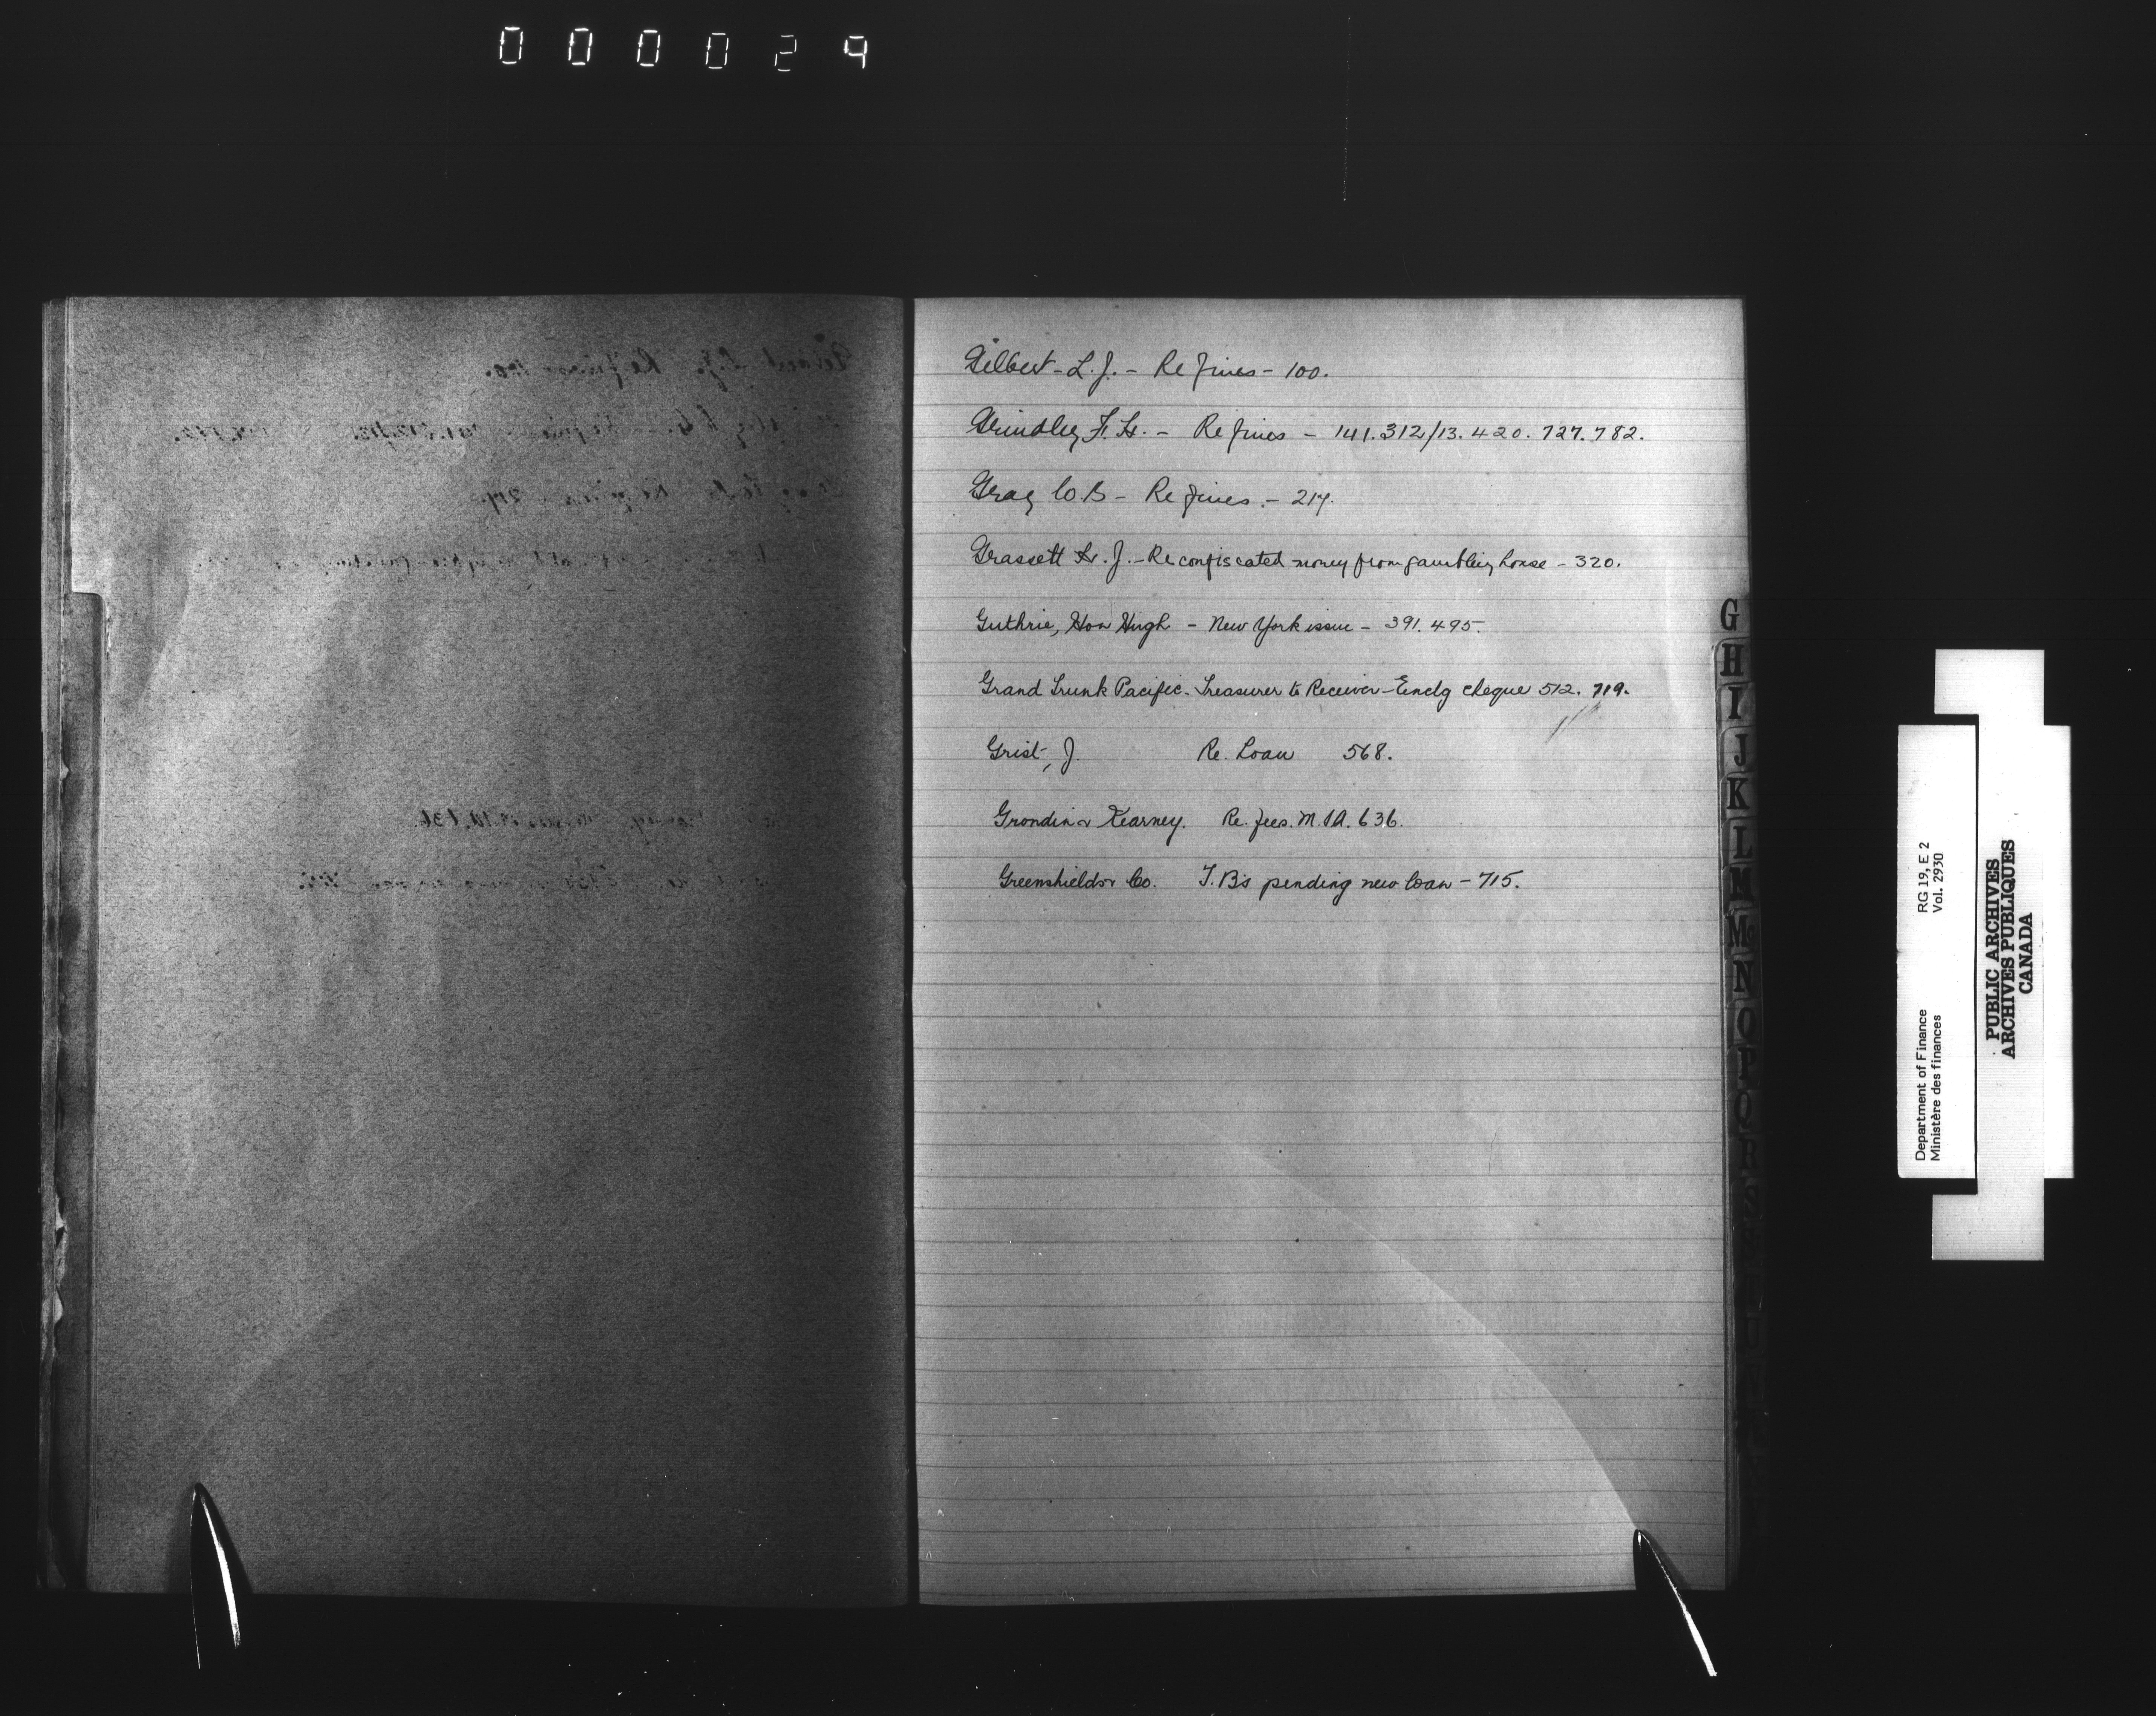 000029
Gilbert - L. J. - Re fines - 100.
Grindley F. H. - Re fines - 141. 312/13. 420. 727. 782.
Gray C. B - Re fines. - 217.
Grassett H. J. - Re confiscated money from gambling house - 320.
Guthrie, Hon Hugh - New York issue - 391. 495.
Grand Trunk Pacific - Treasurer to Receiver - Enclg cheque 512. 719.
Grist, J. Re. Loan 568.
Grondin & Kearney. Re. fees. M. 636.
Greenshields & Co. T.B's pending new loan - 715.
G
H
I
J
K
L
M
Mc
N
O
P
Q
R
Department of Finance RG 19, E 2
Ministère des finances Vol. 2930
PUBLIC ARCHIVES
ARCHIVES PUBLIQUES
CANADA